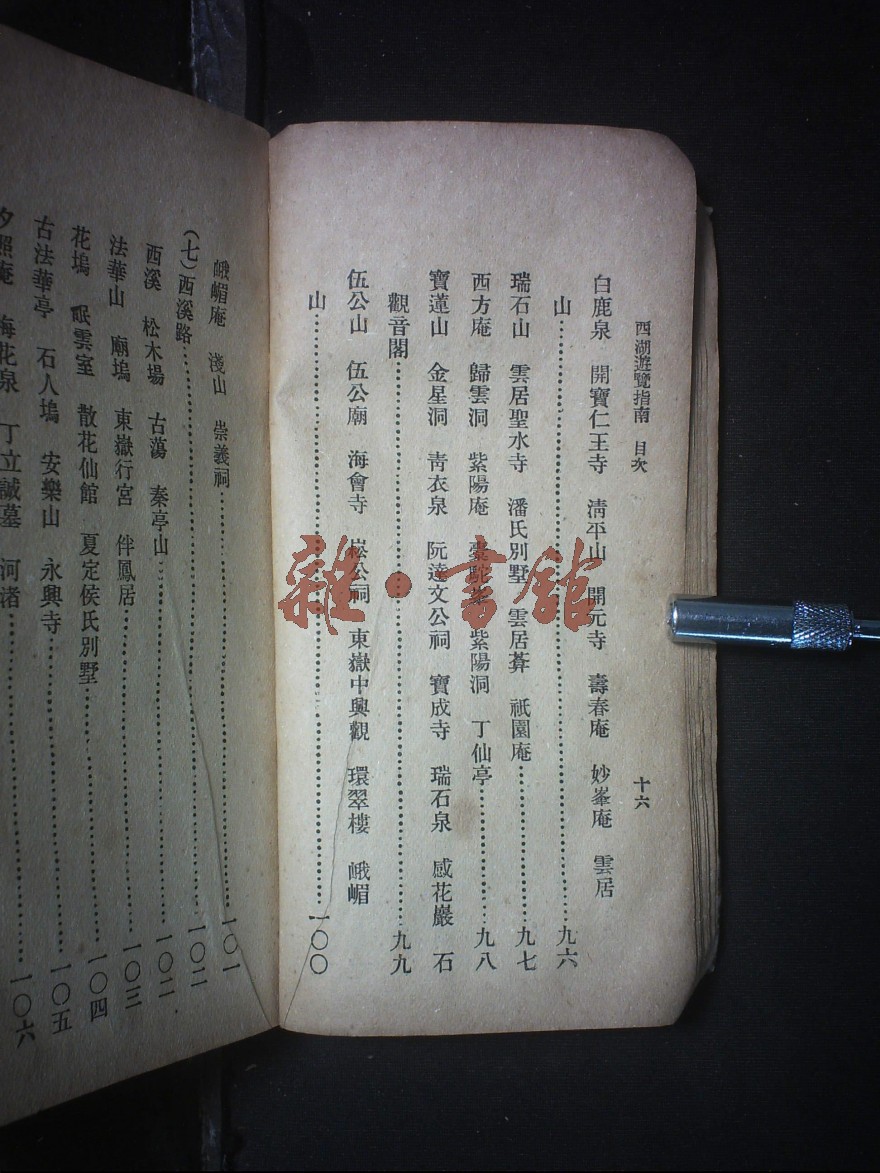 西湖遊覽指南 目次 十六
白鹿泉 開寶仁王寺 淸平山 開元寺 壽春庵 妙峯庵 雲居
山⋯⋯九六
瑞石山 雲居聖水寺 潘氏別墅 雲居葊 祇園庵⋯⋯九七
西方庵 歸雲洞 紫陽庵 橐駝峯 紫陽洞 丁仙亭⋯⋯九八
寶蓮山 金星洞 靑衣泉 阮達文公祠 寶成寺 瑞石泉 感花巖 石
觀音閣⋯⋯九九
伍公山 伍公廟 海會寺 崧公祠 東嶽中興觀 環翠樓 峨嵋
山⋯⋯一〇〇
峨嵋庵 淺山 崇義祠⋯⋯一〇一
(七)西溪路⋯⋯一〇二
西溪 松木場 古蕩 秦亭山⋯⋯一〇二
法華山 廟塢 東嶽行宮 伴鳳居⋯⋯一〇三
花塢 眠雲室 散花仙館 夏定侯氏別墅⋯⋯一〇四
古法華亭 石人塢 安樂山 永興寺⋯⋯一〇五
夕照庵 梅花泉 丁立誠墓 河渚⋯⋯一〇六
雜·書館